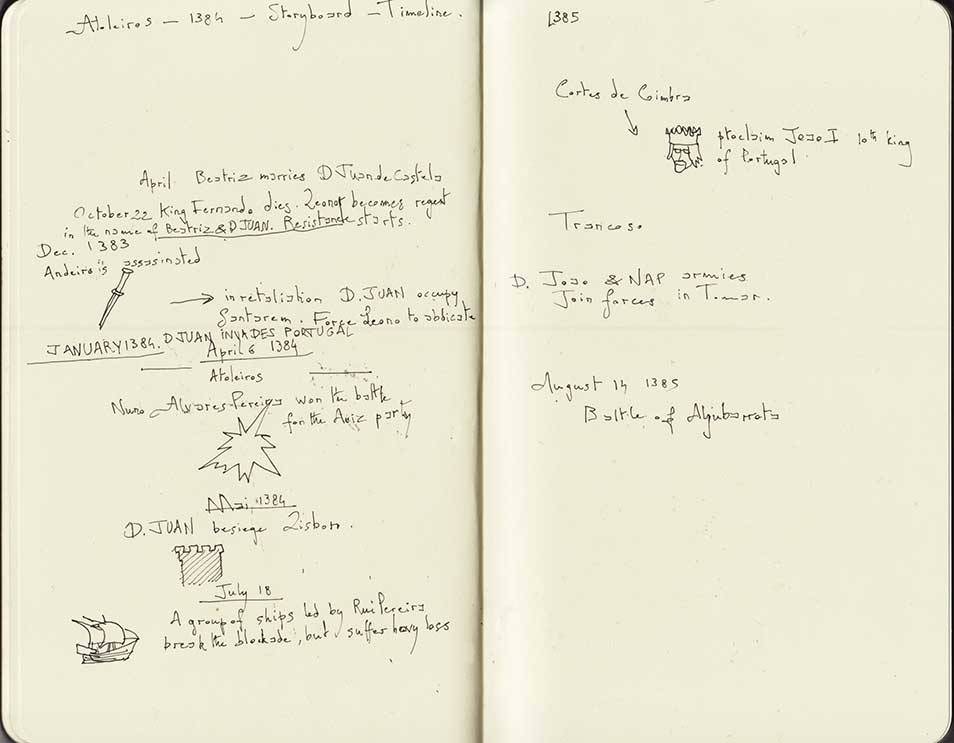 Atoleiros — 1384 — Storyboard — Timeline.
April Beatriz marries D Juan de Castela
October 22 King Fernando dies. Leonor becomes regent
in the name of Beatriz & D JUAN. Resistance starts.
Dec. 1383
Andeiro is assasinated
→ in retaliation D. JUAN occupy
Santarem. Force Leono to abdicate
JANUARY 1384. D JUAN INVADES PORTUGAL
April 6 1384
Atoleiros
Nuno Alvares Pereira won the battle
for the Aviz party
Mai 1384
D. JUAN besiege Lisbon.
July 18
A group of ships led by Rui Pereira
break the blockade, but suffer heavy loss
1385
Cortes de Coimbra
proclaim Joao I 10th king
of Portugal
Trancoso
D. Joao & NAP armies
Join forces in Tomar.
August 14 1385
Battle of Aljubarrota